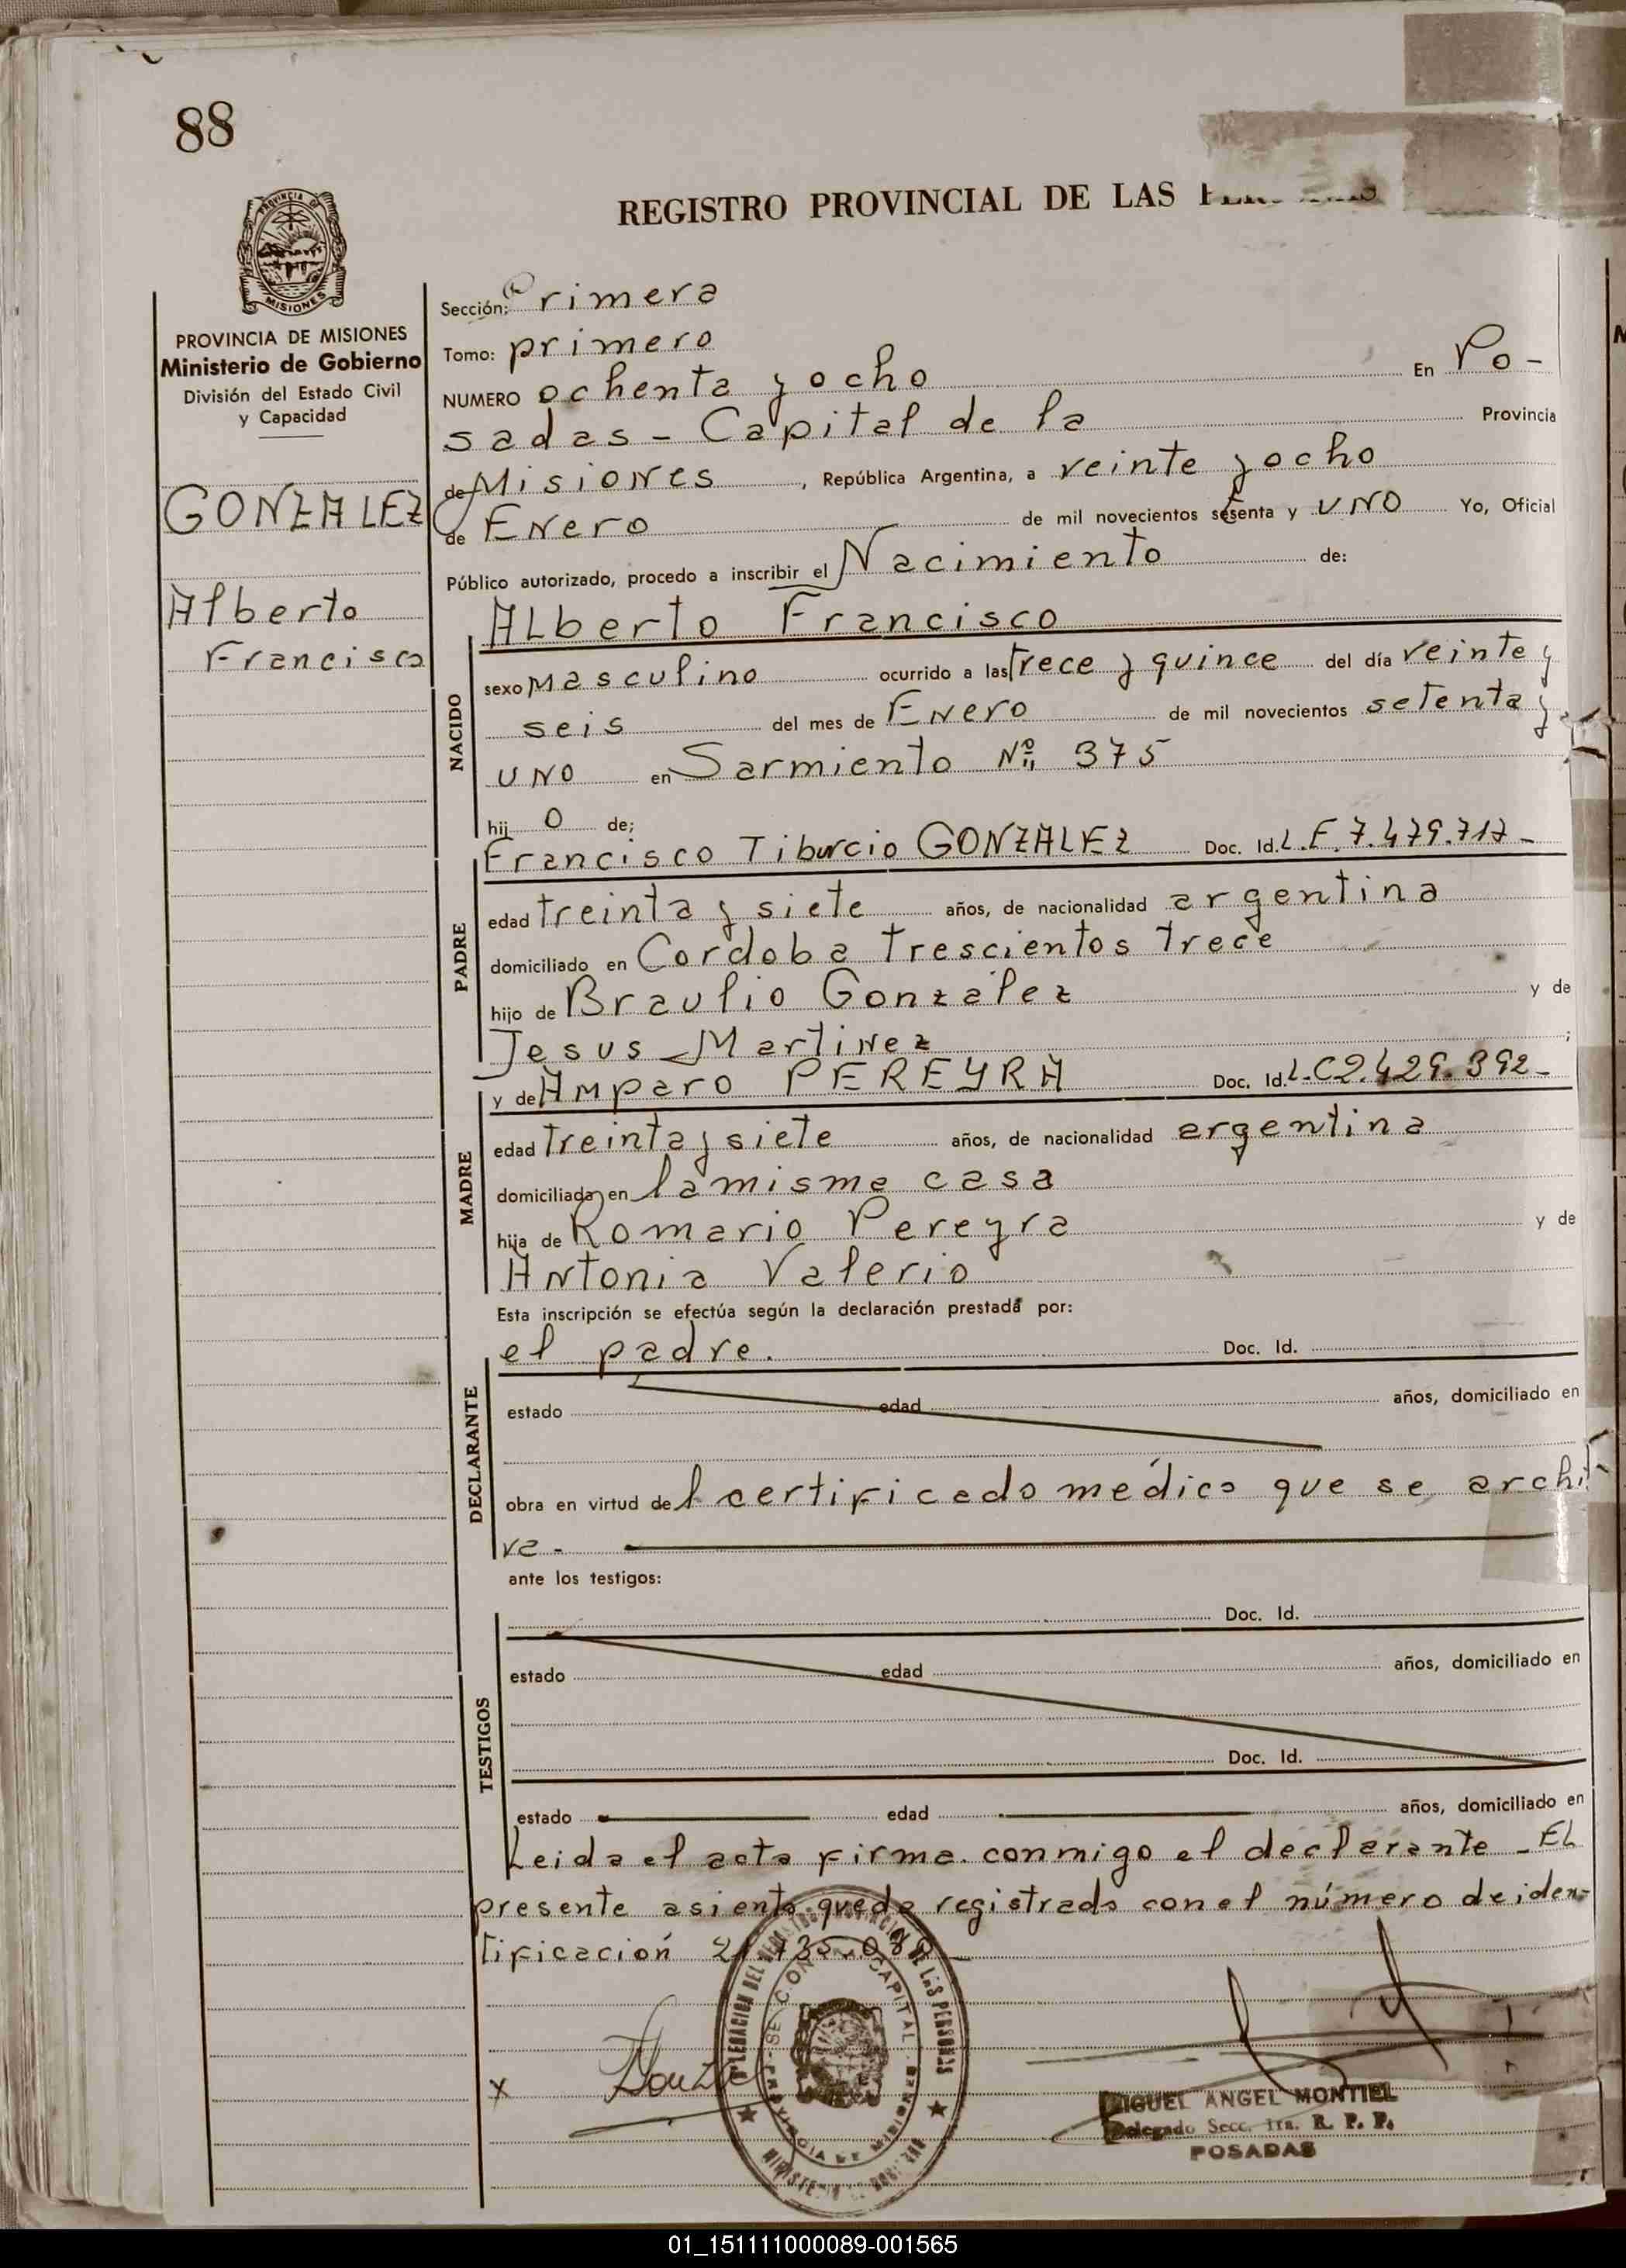 88
REGISTRO PROVINCIAL DE LAS
PROVINCIA DE MISIONES
PROVINCIA DE MISIONES
Ministerio de Gobierno
División del Estado Civil
y Capacidad
GONZALEZ
Alberto
Francisco
Sección: Primera
Tomo: primero
NUMERO ochenta y ocho En Po-
sadas - Capital de la Provincia
de Misiones, República Argentina, a veinte y ocho
de Enero de mil novecientos setenta y uno Yo, Oficial
Público autorizado, procedo a inscribir el Nacimiento de:
Alberto Francisco
NACIDO
sexo masculino ocurrido a las trece y quince del día veinte y
seis del mes de Enero de mil novecientos setenta y
uno en Sarmiento Nº 375
hij o de;
Francisco Tiburcio GONZALEZ Doc. Id. L.E. 7.479.717-
PADRE
edad treinta y siete años, de nacionalidad argentina
domiciliado en Cordoba trescientos trece
hijo de Braulio Gonzalez y de
Jesus Martinez ;
y de Amparo PEREYRA Doc. Id. L.C 2.429.392-
MADRE
edad treinta y siete años, de nacionalidad argentina
domiciliada en la misma casa
hija de Romario Pereyra y de
Antonia Valerio
Esta inscripción se efectúa según la declaración prestada por:
el padre. Doc. Id.
DECLARANTE
estado edad años, domiciliado en
obra en virtud del certificado médico que se archi-
va -
ante los testigos:
Doc. Id.
TESTIGOS
estado edad años, domiciliado en
Doc. Id.
estado edad años, domiciliado en
Leida el acta firma conmigo el declarante - EL
presente asiento queda registrado con el número de iden-
tificación
x
DELEGACION DEL REGISTRO PROVINCIAL DE LAS PERSONAS
SECCION CAPITAL
PROVINCIA DE MISIONES
MIGUEL ANGEL MONTIEL
Delegado Secc. 1ra. R. P. P.
POSADAS
01_151111000089-001565